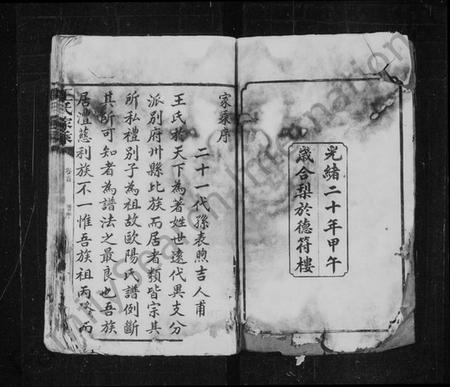 光緒二十年甲午
歲合梨於德符樓
家乘序
二十一代孫表煦吉人甫
王氏於天下為著姓世遠代異支分
派別府州縣比族而居者類皆宗其
所私禮別子為祖故歐陽氏譜例斷
其所可知者為譜法之最良也吾族
居澧慈利族不一惟吾族祖丙 丙
氏宗族
卷首